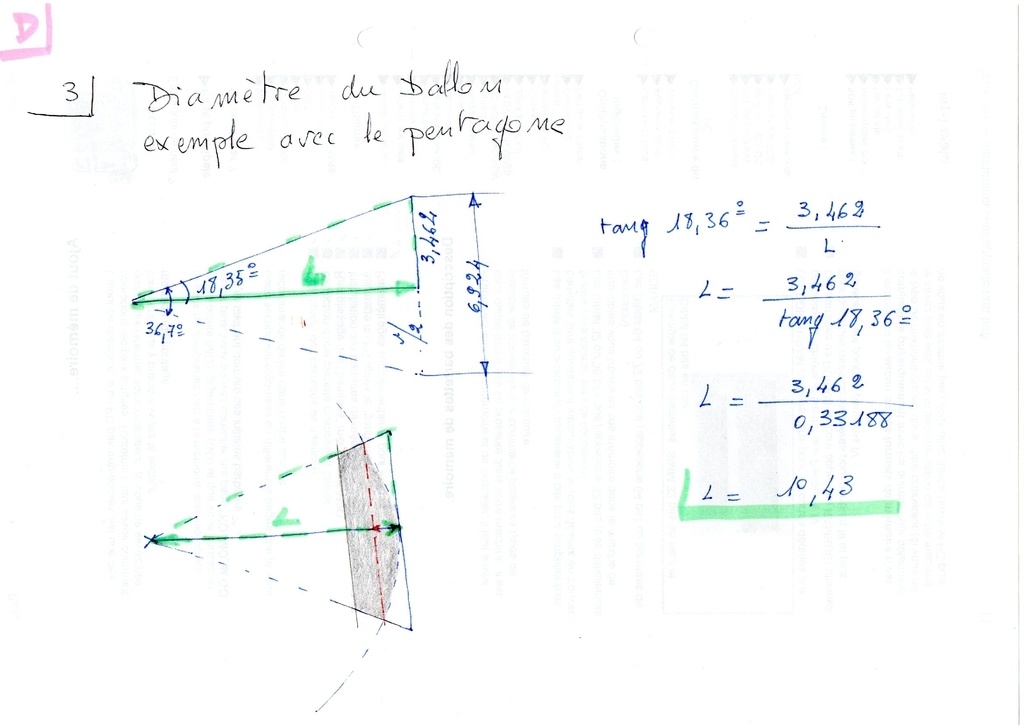 D
3 Diamètre du Ballon
exemple avec le pentagone
18,35°
36,7°
L
3,462
6,924
tang 18,36° = 3,462 / L
L = 3,462 / tang 18,36°
L = 3,462 / 0,33188
L = 10,43
L